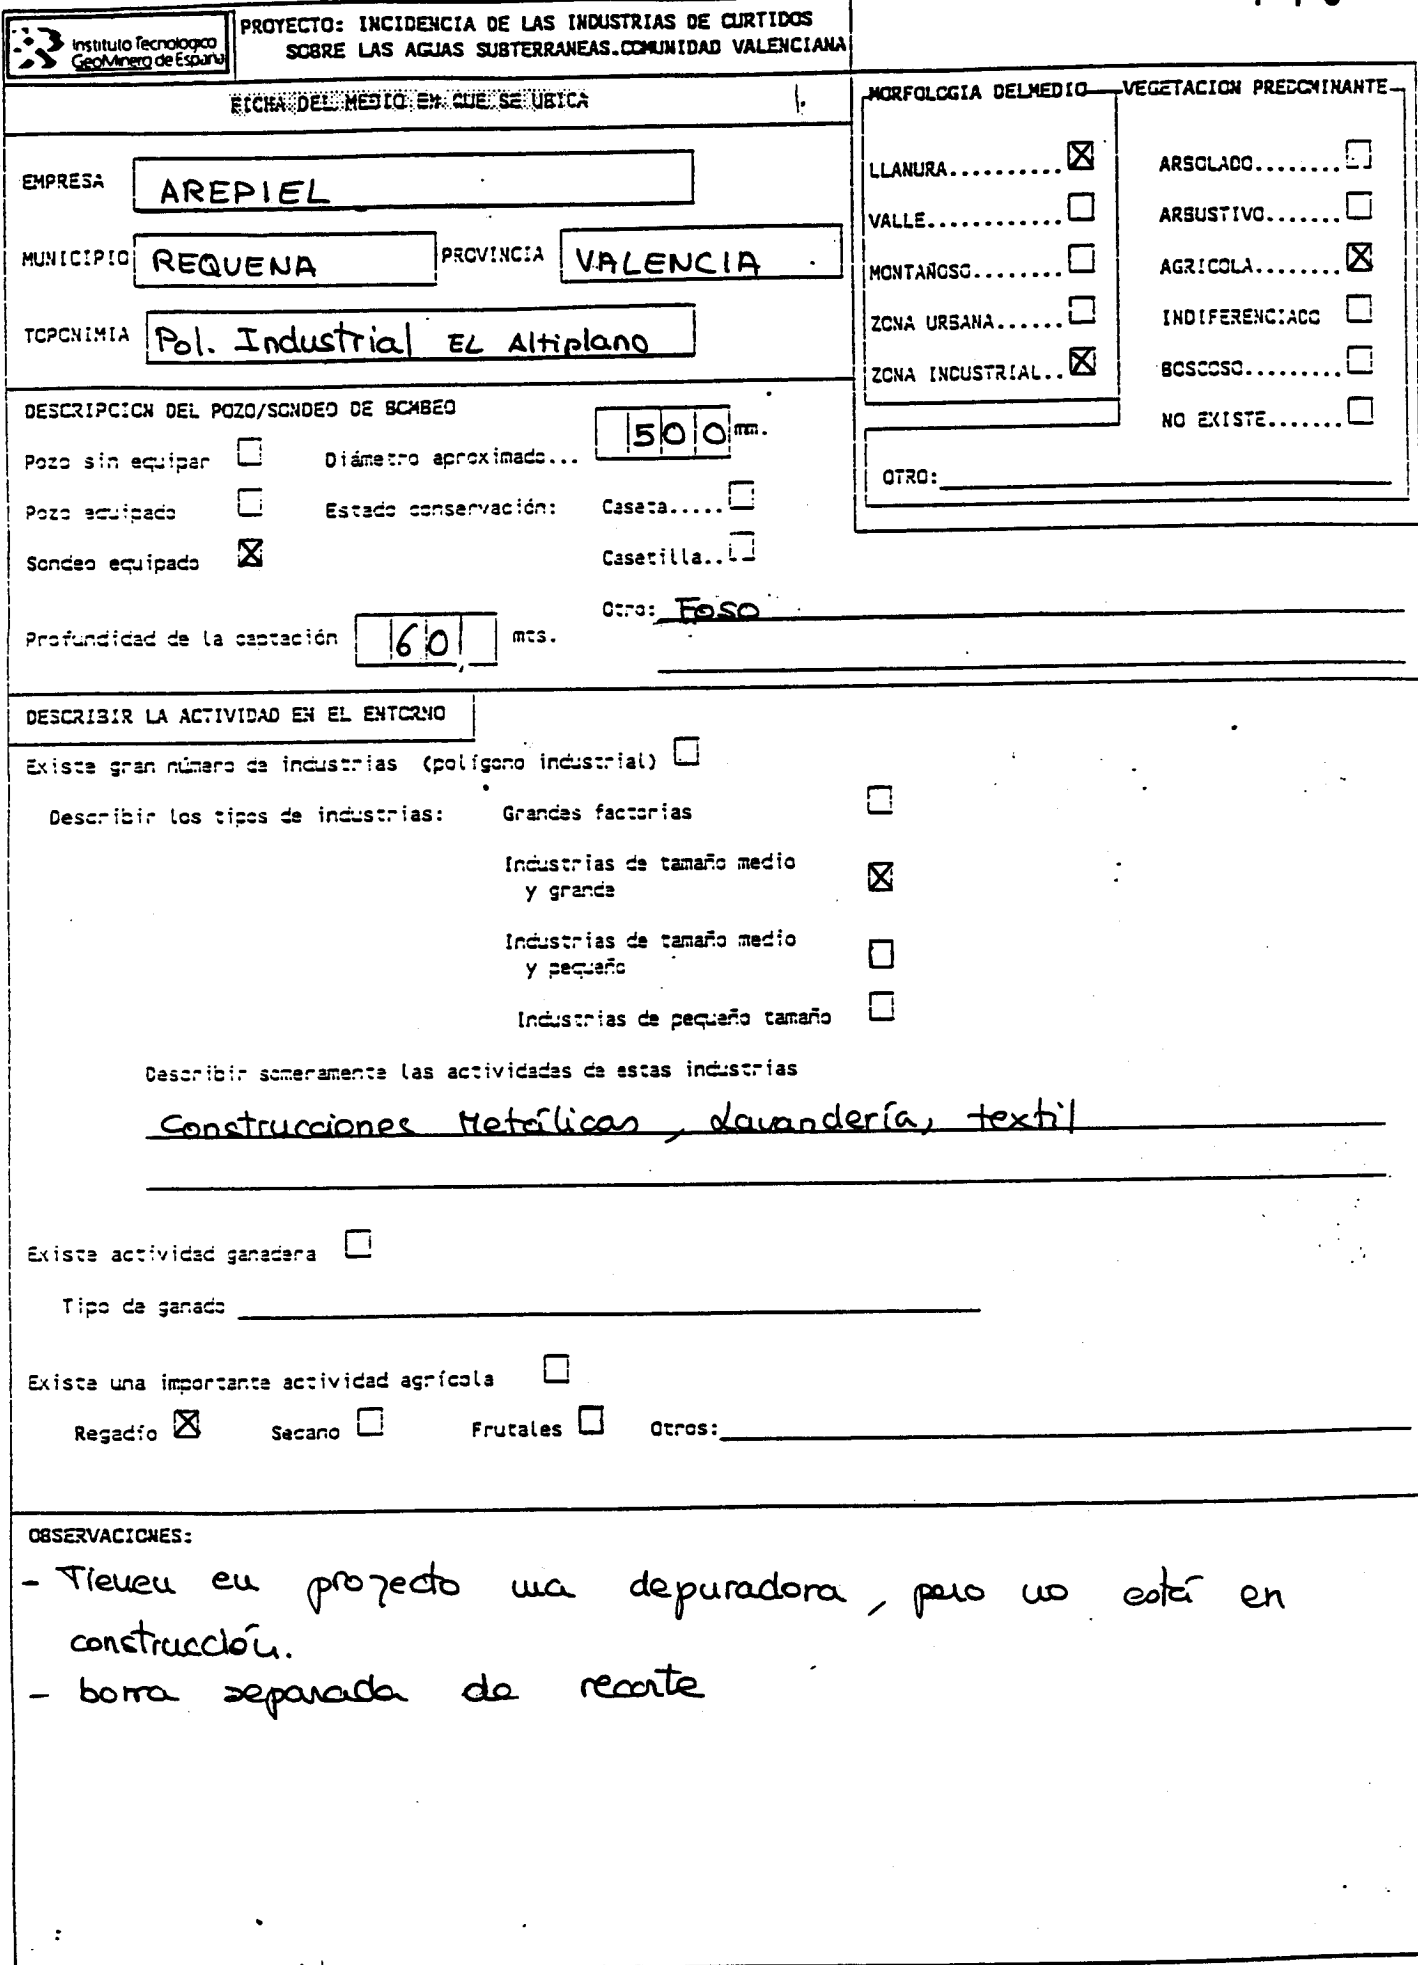 Instituto Tecnologico
GeoMinero de España
PROYECTO: INCIDENCIA DE LAS INDUSTRIAS DE CURTIDOS
SOBRE LAS AGUAS SUBTERRANEAS.COMUNIDAD VALENCIANA
FICHA DEL MEDIO EN QUE SE UBICA
EMPRESA AREPIEL
MUNICIPIO REQUENA PROVINCIA VALENCIA
TOPONIMIA Pol. Industrial EL Altiplano
MORFOLOGIA DELMEDIO
LLANURA..........☒
VALLE............☐
MONTAÑOSO........☐
ZONA URBANA......☐
ZONA INDUSTRIAL..☒
VEGETACION PREDOMINANTE
ARBOLADO........☐
ARBUSTIVO.......☐
AGRICOLA........☒
INDIFERENCIADO ☐
BOSCOSO.........☐
NO EXISTE.......☐
OTRO:
DESCRIPCION DEL POZO/SONDEO DE BOMBEO
Pozo sin equipar ☐ Diámetro aproximado... 500 mm.
Pozo equipado ☐ Estado conservación: Caseta.....☐
Sondeo equipado ☒ Casetilla..☐
Otro: Foso
Profundidad de la captación 60, mts.
DESCRIBIR LA ACTIVIDAD EN EL ENTORNO
Existe gran número de industrias (polígono industrial) ☐
Describir los tipos de industrias: Grandes factorias ☐
Industrias de tamaño medio
y grande ☒
Industrias de tamaño medio
y pequeño ☐
Industrias de pequeño tamaño ☐
Describir someramente las actividades de estas industrias
Construcciones Metálicas, Lavandería, textil
Existe actividad ganadera ☐
Tipo de ganado
Existe una importante actividad agrícola ☐
Regadío ☒ Secano ☐ Frutales ☐ Otros:
OBSERVACIONES:
- Tienen en proyecto una depuradora, pero no está en
construcción.
- borra separada de recorte